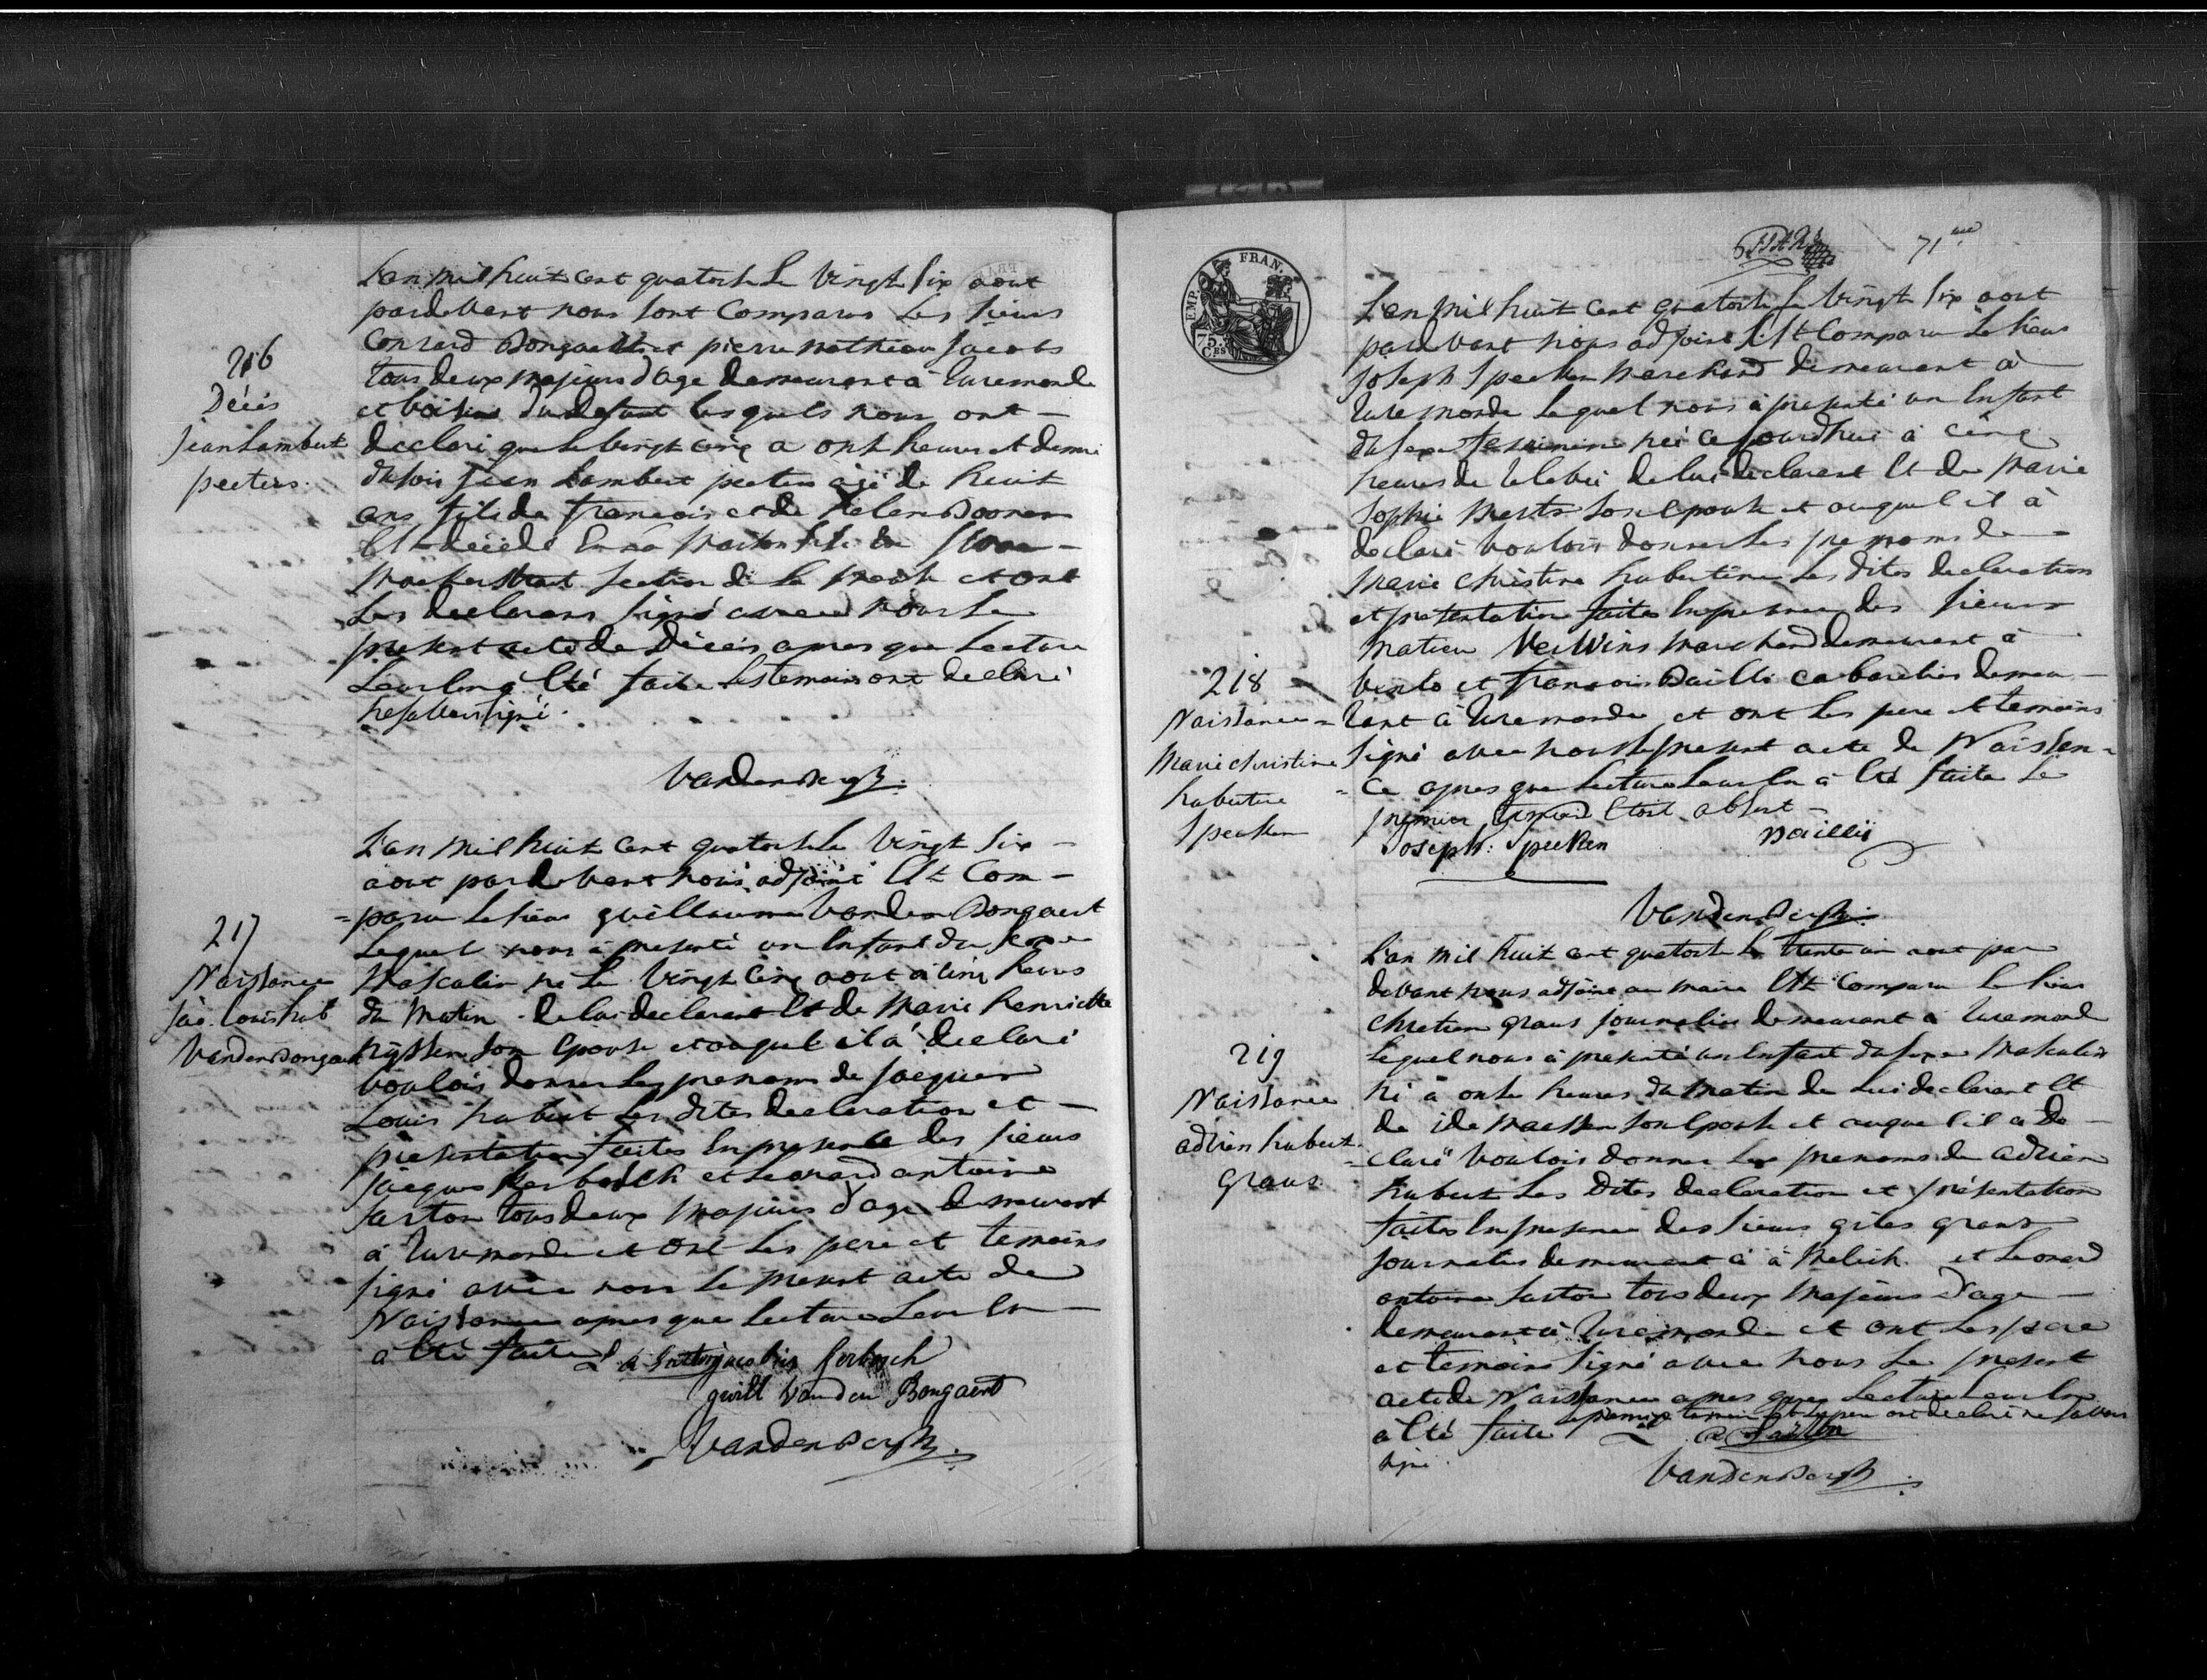 216
Décès
Jean Lambert
peeters.
L'an mil huit cent quatorse Le vingt six aout
pardevant nous sont Comparus Les sieurs
Conrard Bongaerts et pierre mathieu Jacobs
tous deux majeurs d'age demeurant à Ruremonde
et voisins du defunt lesquels nous ont
declaré que le vingt cinq a onse heures et demi
du soir Jean Lambert peeters agé de huit
ans fils de francois et de helene Doonen
Est decédé En sa maison sise
section de la et ont
Les declarans signé avec nous Le
present acte de Décès apres que Lecture
Leur En à Eté faite Les temoins ont declaré
ne savoir signé.
Vandenbergh
217
Naissance
Jac. Louis hub
Vanden Bongaert
L'an mil huit cent quatorse Le vingt six
aout pardevant nous adjoint Est Com-
=paru Le sieur guillaume Vanden Bongaert
Lequel nous à presenté un Enfant du sexe
Masculin né Le vingt cinq aout à cinq heures
du matin de lui declarant Et de Marie henriette
nijssen son Epouse et auquel il à declaré
vouloir donner les prenoms de Jacques
Louis hubert Les dites declaration et
presentation faites En presence des sieurs
Jacques Kerbosch et Leonard antoine
sarton tous deux majeurs d'age demeurant
à Ruremonde et ont Les pere et temoins
signé avec nous le present acte de
Naissance apres que Lecture Leur En
a Eté faite
guill Vanden Bongaert
Vandenbergh
71me
EMP. FRAN.
75.
Ces
218
Naissance
Marie christine
hubertine
Specken
L'an mil huit cent quatorse Le vingt six aout
pardevant nous adjoint Est Comparu Le sieur
Joseph Specken marchand demeurant à
Ruremonde Lequel nous à presenté un Enfant
du sexe feminin né cejourdhui à cinq
heures de relevé de lui declarant Et de Marie
sophie Merts son Epouse et auquel il à
declaré vouloir donner Les prenoms de
Marie christine hubertine Les dites declaration
et presentation faites En presence des sieurs
matieu Verwins marchand demeurant à
Venlo et francois Dailli cabaretier demeu-
rant à Ruremonde et ont Les pere et temoins
signé avec nous Le present acte de Naissan-
=ce apres que Lecture Leur En à Eté faite Le
premier temoin Etoit absent
Joseph: Specken
Dailli
Vandenbergh
219
Naissance
adrien hubert
graus
L'an mil huit cent quatorse le trente un aout par
devant nous adjoint au maire Est Comparu Le sieur
chretien graus journalier demeurant à Ruremond
Lequel nous à presenté un Enfant du sexe Masculin
né à onse heures du matin de Lui declarant Et
de ide maessen son Epouse et auquel il a de-
=claré vouloir donner Les prenoms de adrien
hubert Les dites declaration et présentation
faites En presence des sieurs giles graus
journalier demeurant à à Melick et Leonard
antoine sarton tous deux majeurs d'age
demeurant à Ruremonde et ont Les pere
et temoins signé avec nous Le present
acte de Naissance apres que Lecture Leur En
à Eté faite Le premier temoin et le pere ont declaré ne savoir
signé.
Vandenbergh